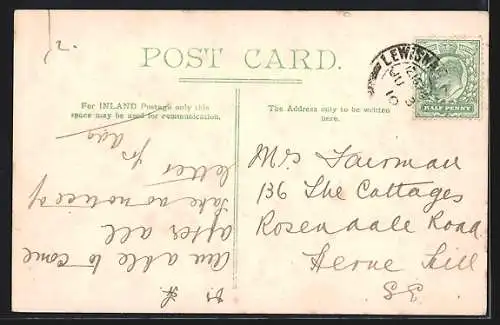 POST CARD.
For INLAND Postage only this
space may be used for communication.
The Address only to be written
here.
LEWISH
JU 3
10
HALF PENNY
Mrs Fairman
136 The Cottages
Rosendale Road
Herne Hill
S.E
Am able to come
after all
take no notice of
letter
fr Ada